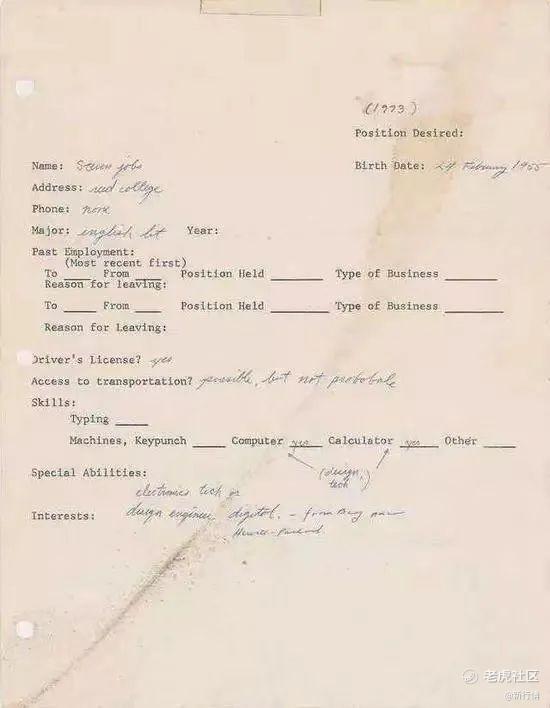 (1973)
Position Desired:
Name: Steven jobs
Birth Date: 24 February 1955
Address: reed college
Phone: none
Major: english lit Year:
Past Employment:
(Most recent first)
To ____ From ____ Position Held ________ Type of Business ________
Reason for leaving:
To ____ From ____ Position Held ________ Type of Business ________
Reason for Leaving:
Driver's License? yes
Access to transportation? possible, but not probable
Skills:
Typing ____
Machines, Keypunch ____ Computer yes Calculator yes Other ____
(design, tech)
Special Abilities:
electronics tech or
Interests: design engineer digital. – from Bay near
Hewitt-Packard
老虎社区
@新行情